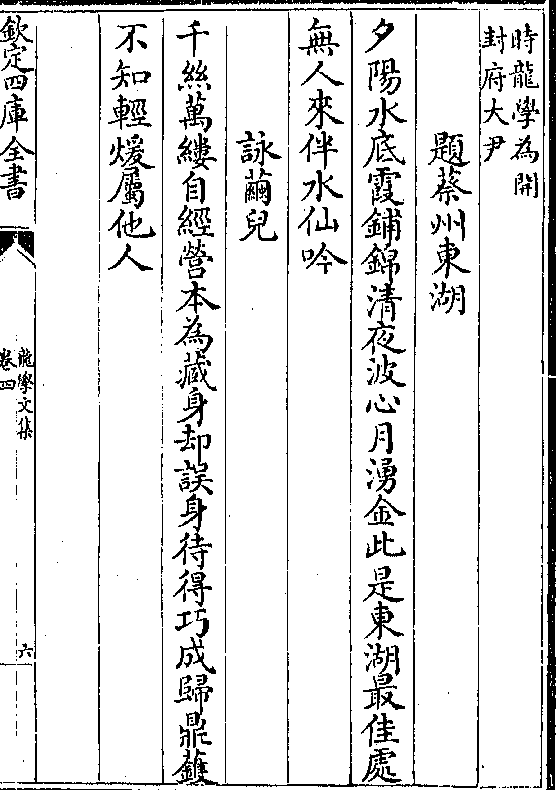 時龍學為開
封府大尹
題蔡州東湖
夕陽水底霞鋪錦清夜波心月湧金此是東湖最佳處
無人來伴水仙吟
詠繭兒
千絲萬縷自經營本為藏身却誤身待得巧成歸鼎鑊
不知輕煖屬他人
欽定四庫全書
龍學文集
卷四
六